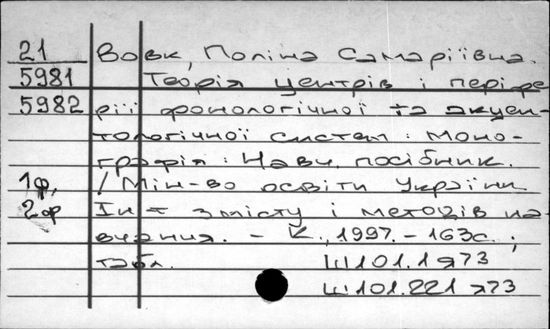 21 Вовк, Поліна Самаріївна.
5981 Теорія центрів і періфе
5982 рії фонологічної та акцен-
тологічної систем: Моно-
графія: Навч. посібник.
1ф, / Мін-во освіти України
2ф Ін-т змісту і методів на-
вчання. – К., 1997. – 163с.;
табл. Ш101.1я73
Ш101.221я73